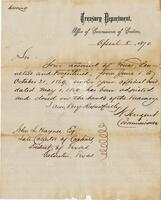 Treasury Department,
Office of Commissioner of Customs,
April 5, 1870.
Sir
Your account of
from July 1 to
October 21, 1869, under your
dated May 1, 1869 has been adjusted
and closed on the books of the Treasury
I am, Very Respectfully
N Sargent
Commissioner
John L Haynes Esq
Late Collector of Customs
District of Texas
Galveston, Texas